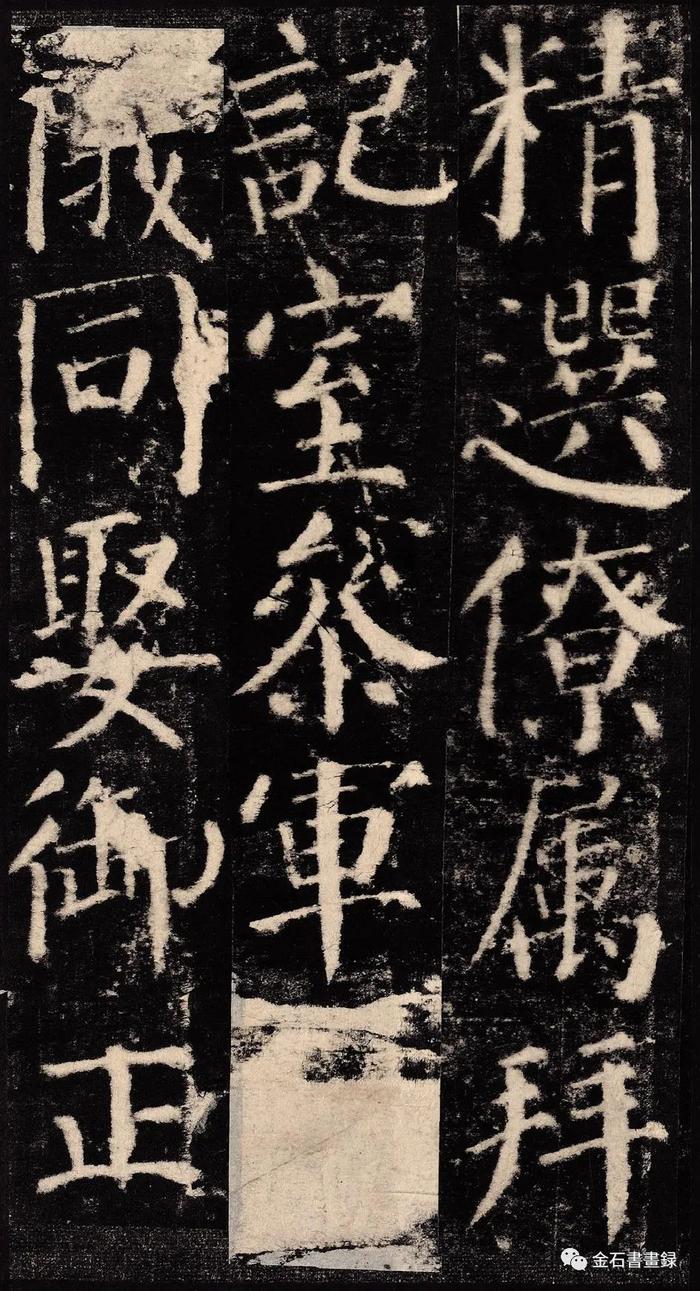 精選僚属拜
記室叅軍
儀同娶御正
金石書畫録